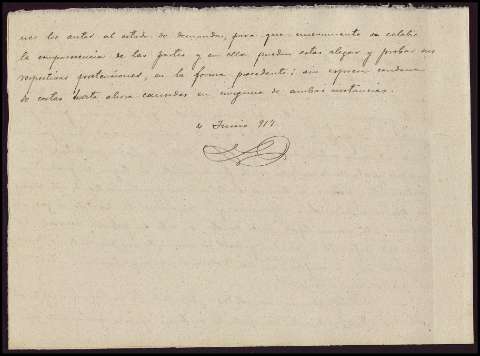 nes los autos al estado de demanda, para que nuevamente se celebre
la comparecencia de las partes y en ella puedan estas alegar y probar sus
respectivas pretensiones, en la forma procedente; sin expresa condena
de costas hasta ahora causadas en ninguna de ambas instancias.
4 Junio 917.